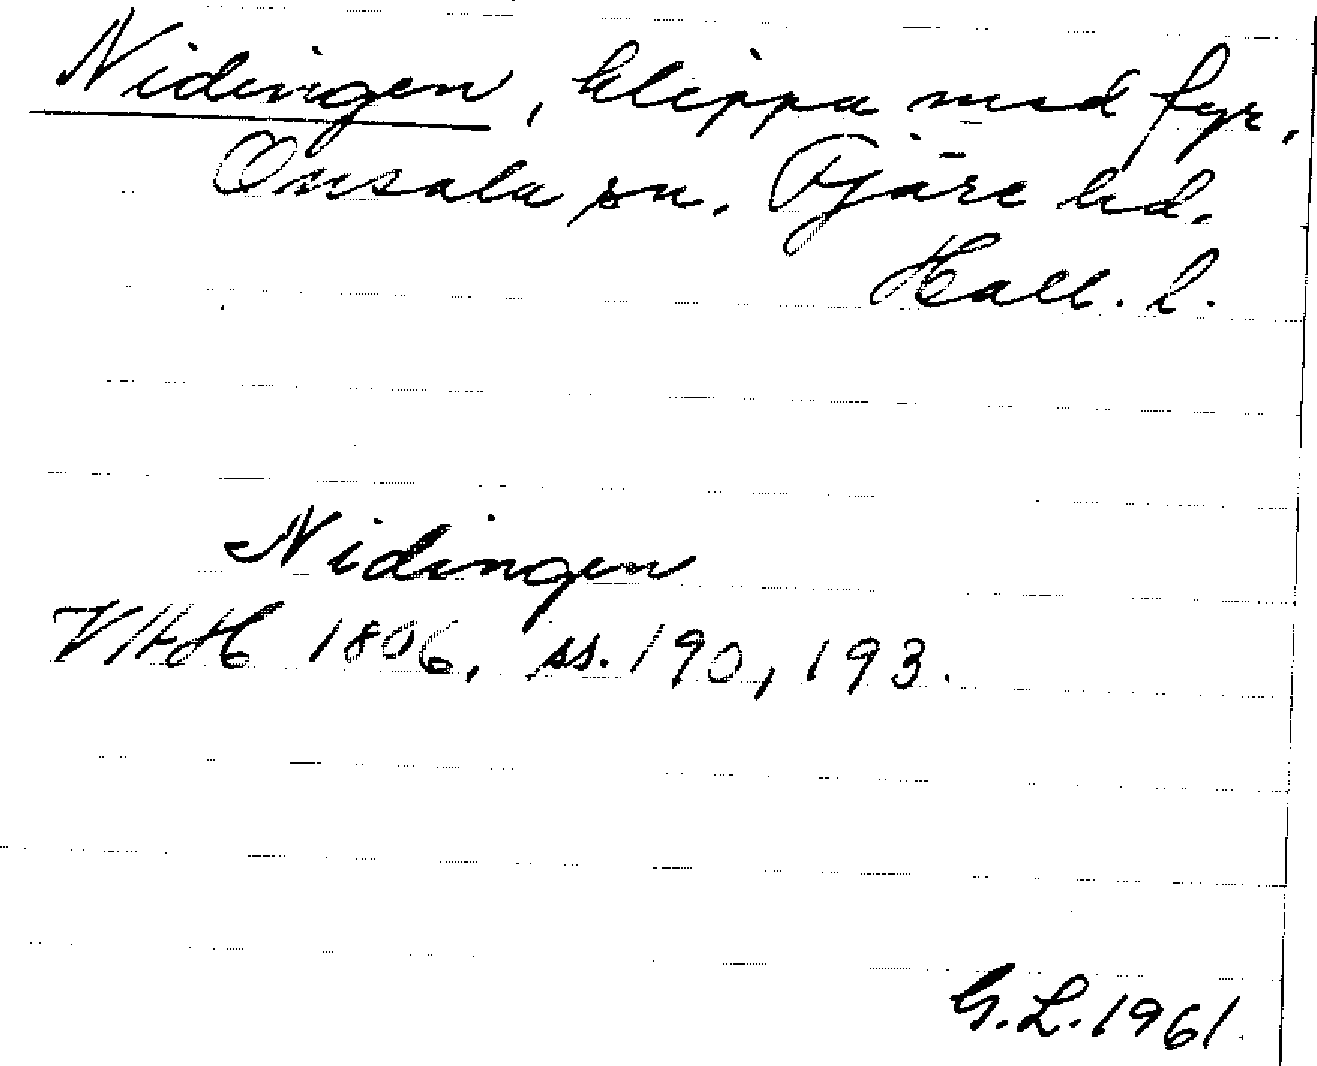 Nidingen, klippa med fyr,
Onsala sn. Fjäre hd.
Hall. l.
Nidingen
VHH 1806, ss. 190, 193.
G. L. 1961.